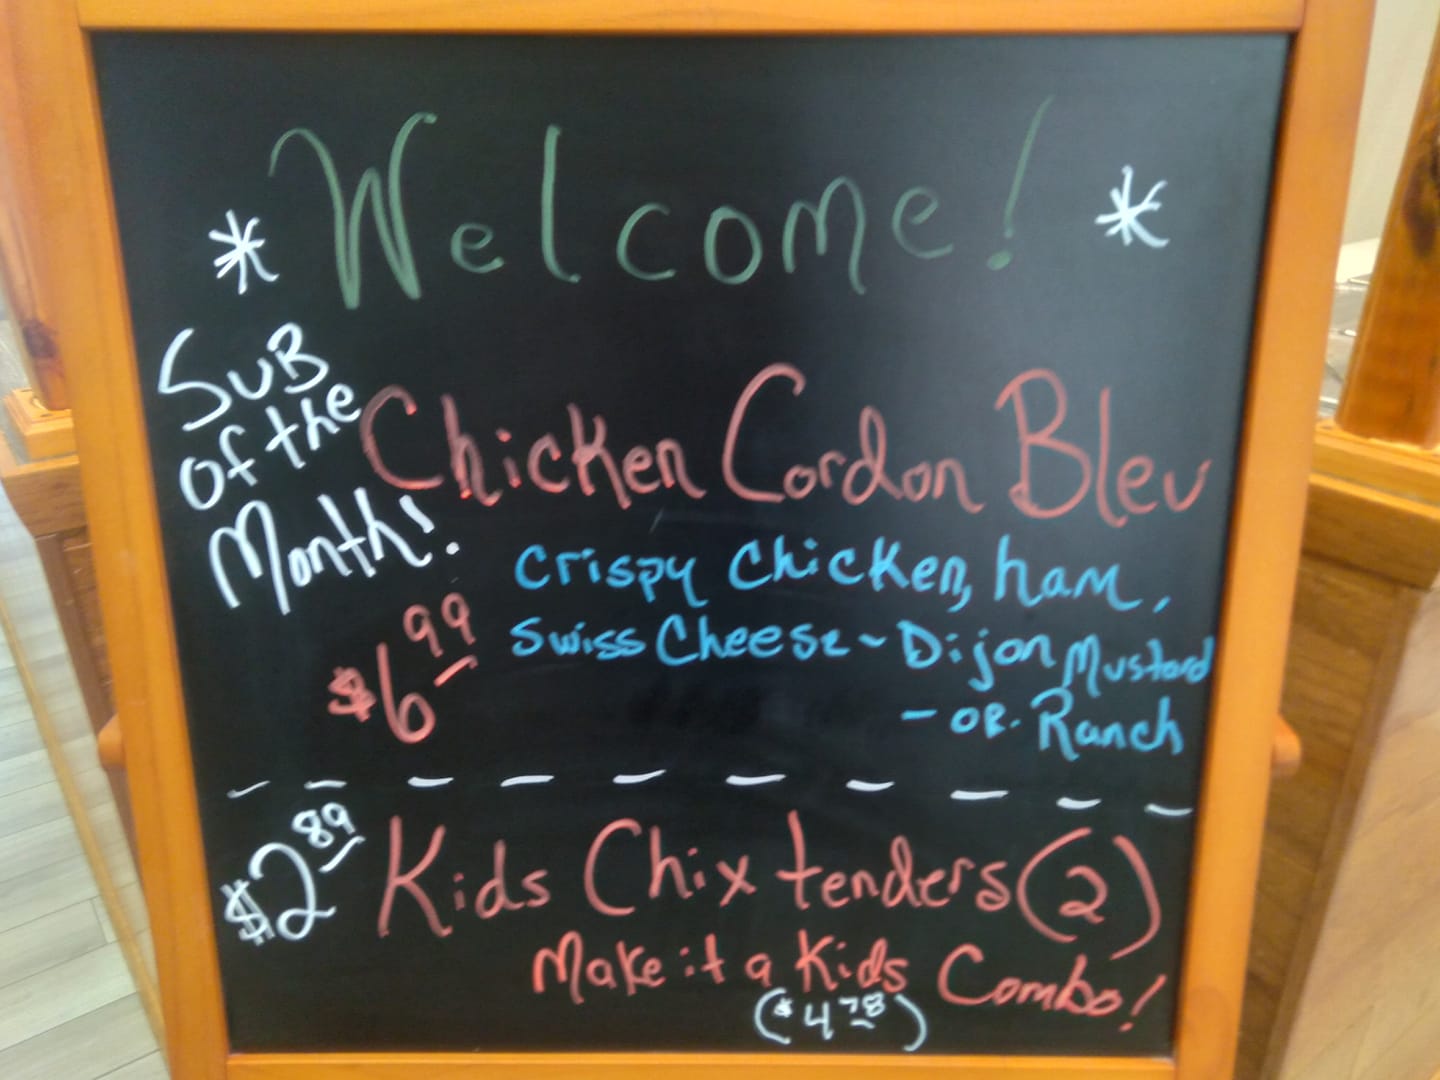 * Welcome! *
Sub
of the
Month!
Chicken Cordon Bleu
$6.99
Crispy Chicken, ham,
Swiss Cheese ~ Dijon Mustard
- OR. Ranch
$2.89
Kids Chix tenders (2)
Make it a Kids Combo!
($4.78)